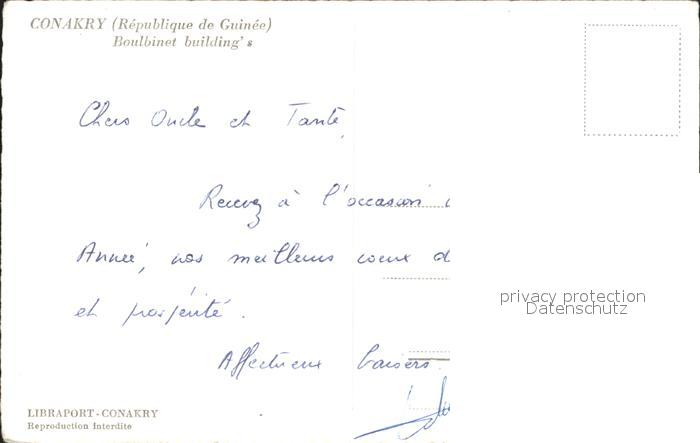 CONAKRY (République de Guinée)
Boulbinet building's
Chers Oncle et Tante,
Recevez à l'occasion
Année, nos meilleurs voeux d
et prospérité.
privacy protection
Datenschutz
Affectueux baisers.
LIBRAPORT - CONAKRY
Reproduction Interdite